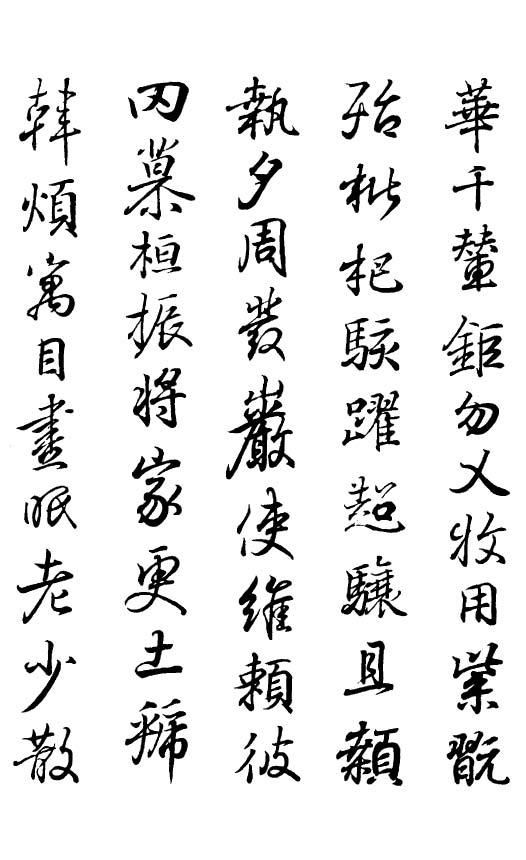 華千輦鉅勿乂牧用紫翫
殆枇杷駭躍超驤且顙
執夕周發巖使維賴彼
罔慕桓振將家更土號
韓煩寓目晝眠老少散